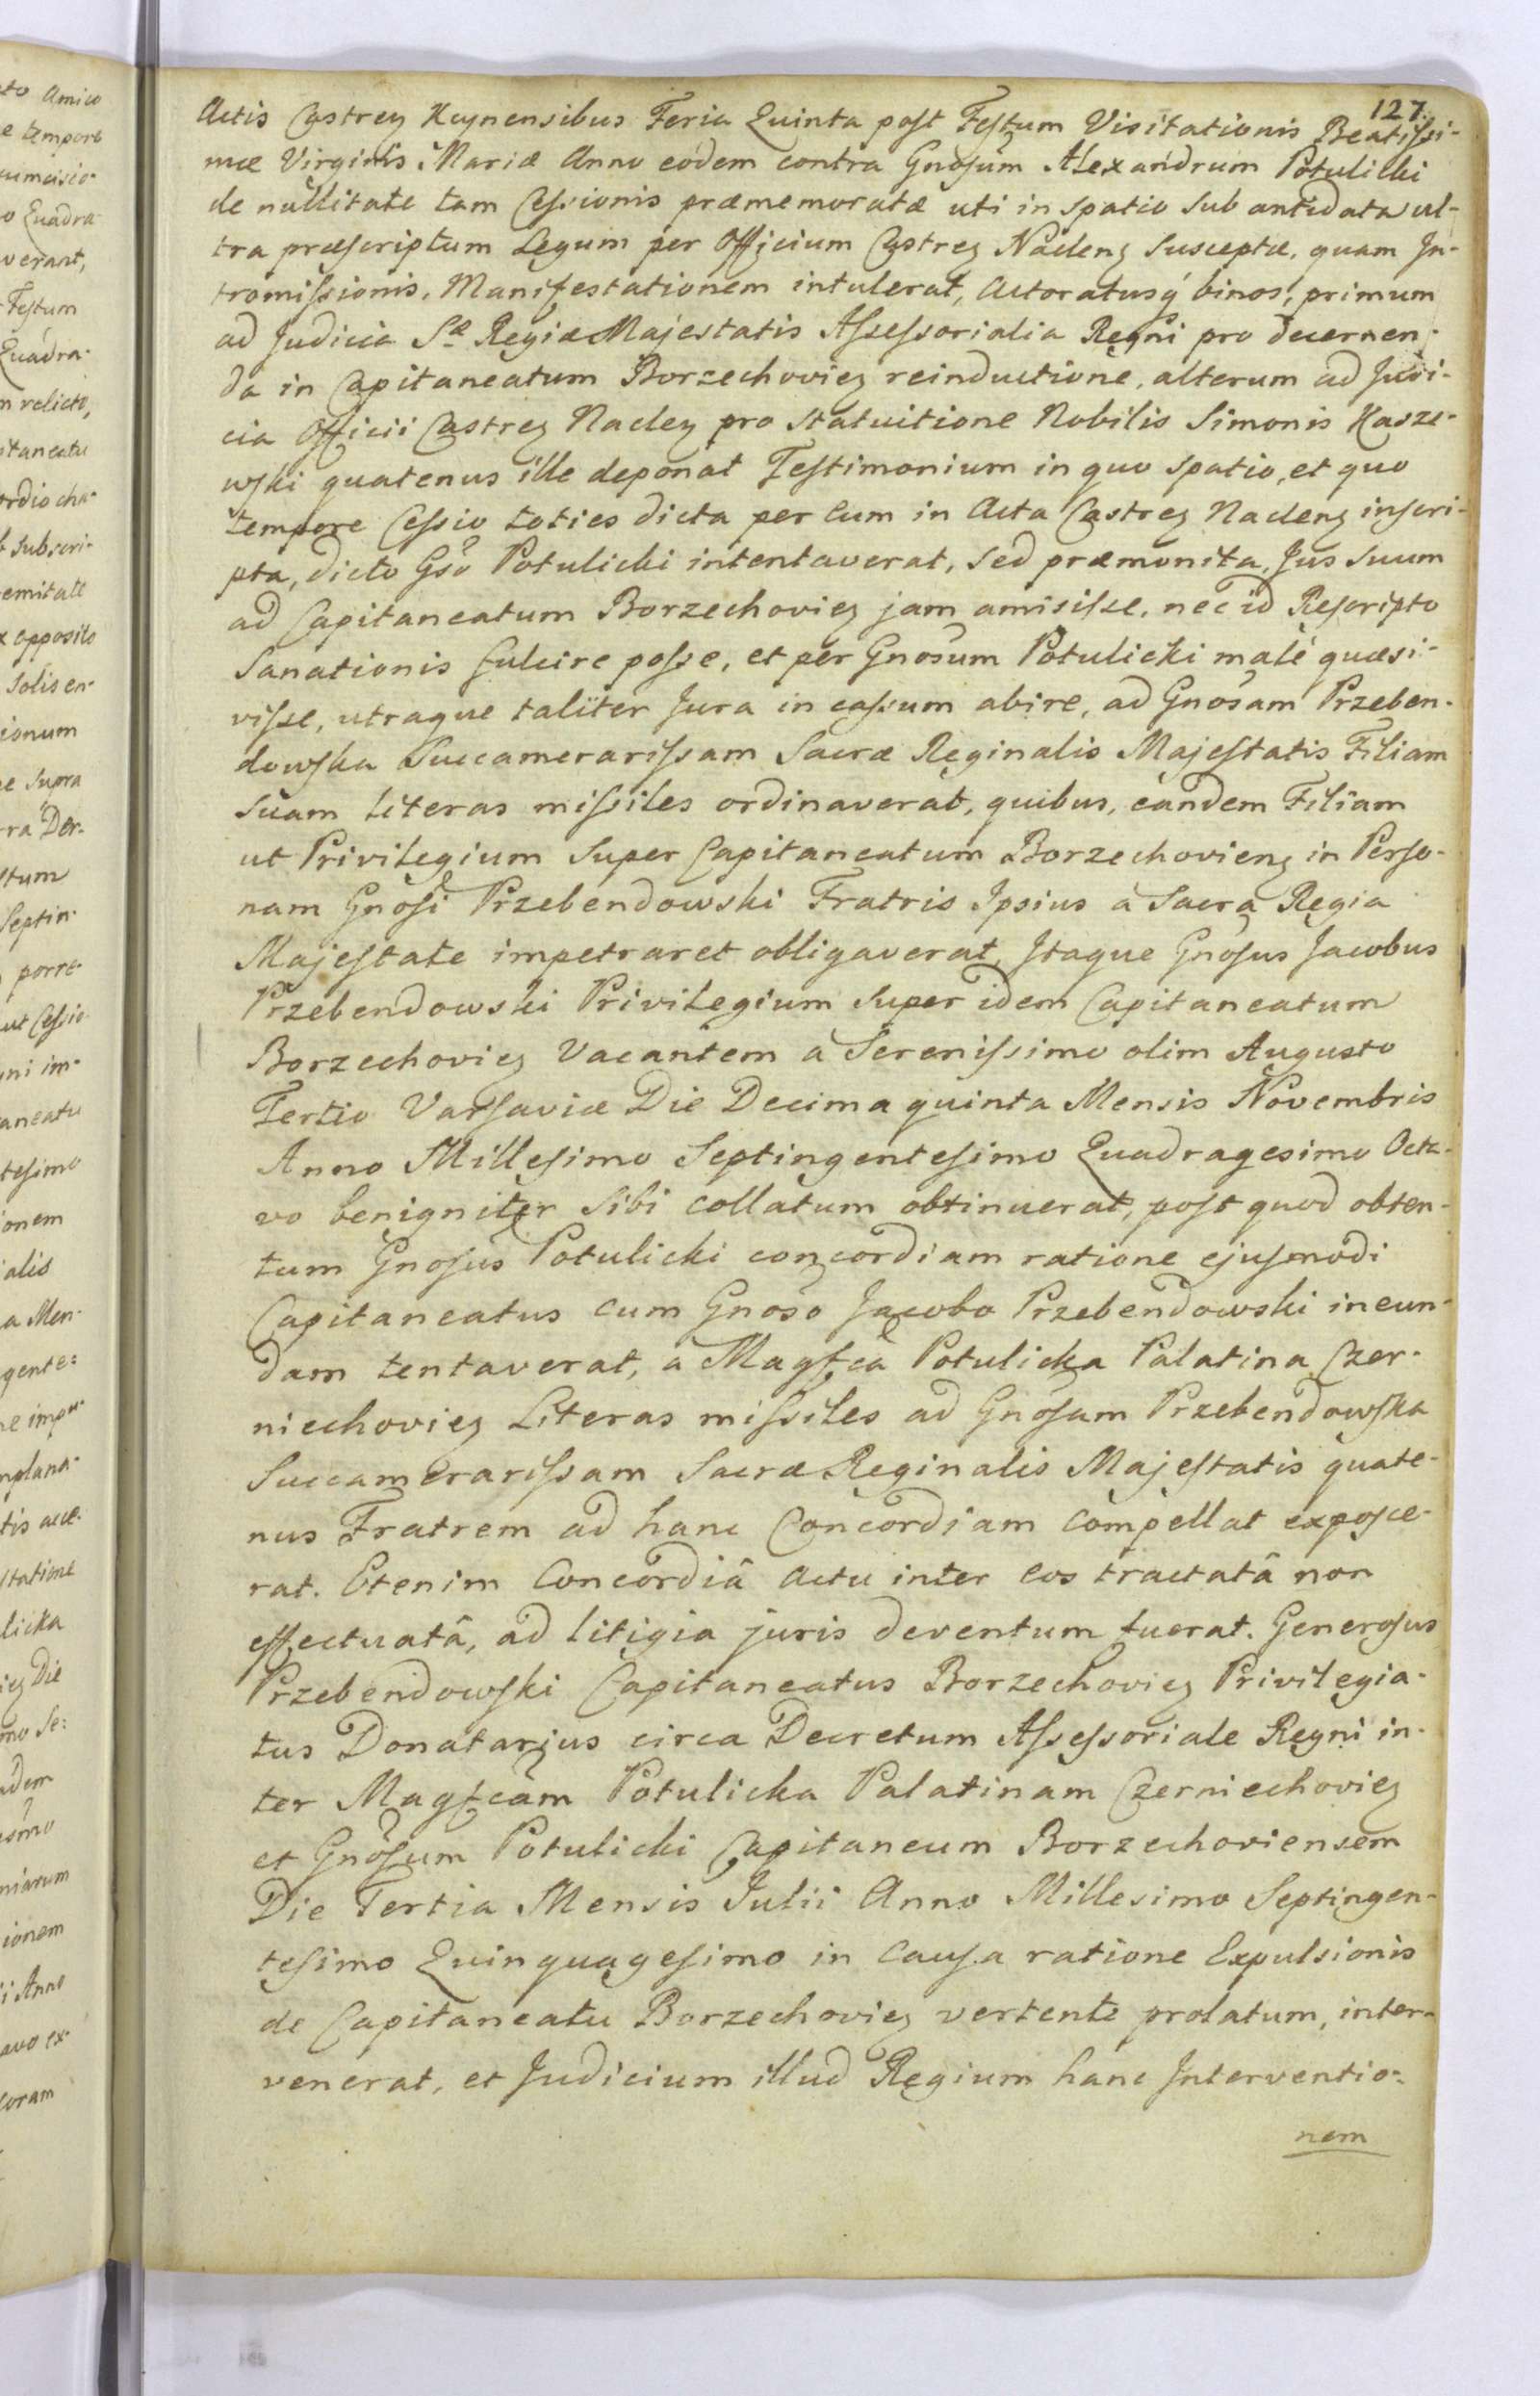 127.
Actis Castren Kcynensibus Feria Quinta post Festum Visitationis Beatissi-
mæ Virginis Mariæ Anno eodem contra Gnosum Alexandrum Potulicki
de nullitate tam Cessionis præmemoratæ uti in spatio sub antidata ul-
tra præscriptum Legum per Officium Castren Naclen susceptæ, quam In-
tromissionis, Manifestationem intulerat, Actoratusq binos, primum
ad Judicia Sæ Regiæ Majestatis Assessorialia Regni pro decernen-
da in Capitaneatum Borzechovien reinductione, alterum ad Judi-
cia Officii Castren Naclen pro statuitione Nobilis Simonis Kasze-
wski quatenus ille deponat Testimonium in quo spatio, et quo
tempore Cessio toties dicta per Eum in Acta Castren Naclen inscri-
pta, dicto Gso Potulicki intentaverat, sed præmonita, Jus suum
ad Capitaneatum Borzechovien jam amisisse, nec id Rescripto
Sanationis fulcire posse, et per Gnosum Potulicki malè quæsi-
visse, utraque taliter Jura in cassum abire, ad Gnosam Przeben-
dowska Succamerarissam Sacræ Reginalis Majestatis Filiam
suam literas missiles ordinaverat, quibus, eandem Filiam
ut Privilegium super Capitaneatum Borzechovien in Perso-
nam Gnosi Przebendowski Fratris Ipsius à Sacra Regia
Majestate impetraret obligaverat, Itaque Gnosus Jacobus
Przebendowski Privilegium super idem Capitaneatum
Borzechovien Vacantem à Serenissimo olim Augusto
Tertio Varsaviæ Die Decima quinta Mensis Novembris
Anno Millesimo Septingentesimo Quadragesimo Octa-
vo benigniter sibi collatum obtinuerat, post quod obten-
tum Gnosus Potulicki concordiam ratione ejusmodi
Capitaneatus cum Gnoso Jacobo Przebendowski ineun-
dam tentaverat, à Magfca Potulicka Palatina Czer-
niechovien Literas missiles ad Gnosam Przebendowska
Succamerarissam Sacræ Reginalis Majestatis quate-
nus Fratrem ad hanc Concordiam compellat exposce-
rat. Etenim Concordiâ actu inter Eos tractatâ non
effectuatâ, ad litigia juris deventum fuerat. Generosus
Przebendowski Capitaneatus Borzechovien Privilegia-
tus Donatarius circa Decretum Assessoriale Regni in-
ter Magfcam Potulicka Palatinam Czerniechovien
et Gnosum Potulicki Capitaneum Borzechoviensem
Die Tertia Mensis Julii Anno Millesimo Septingen-
tesimo Quinquagesimo in Causa ratione Expulsionis
de Capitaneatu Borzechovien vertente prolatum, inter-
venerat, et Judicium illud Regium hanc Interventio-
nem